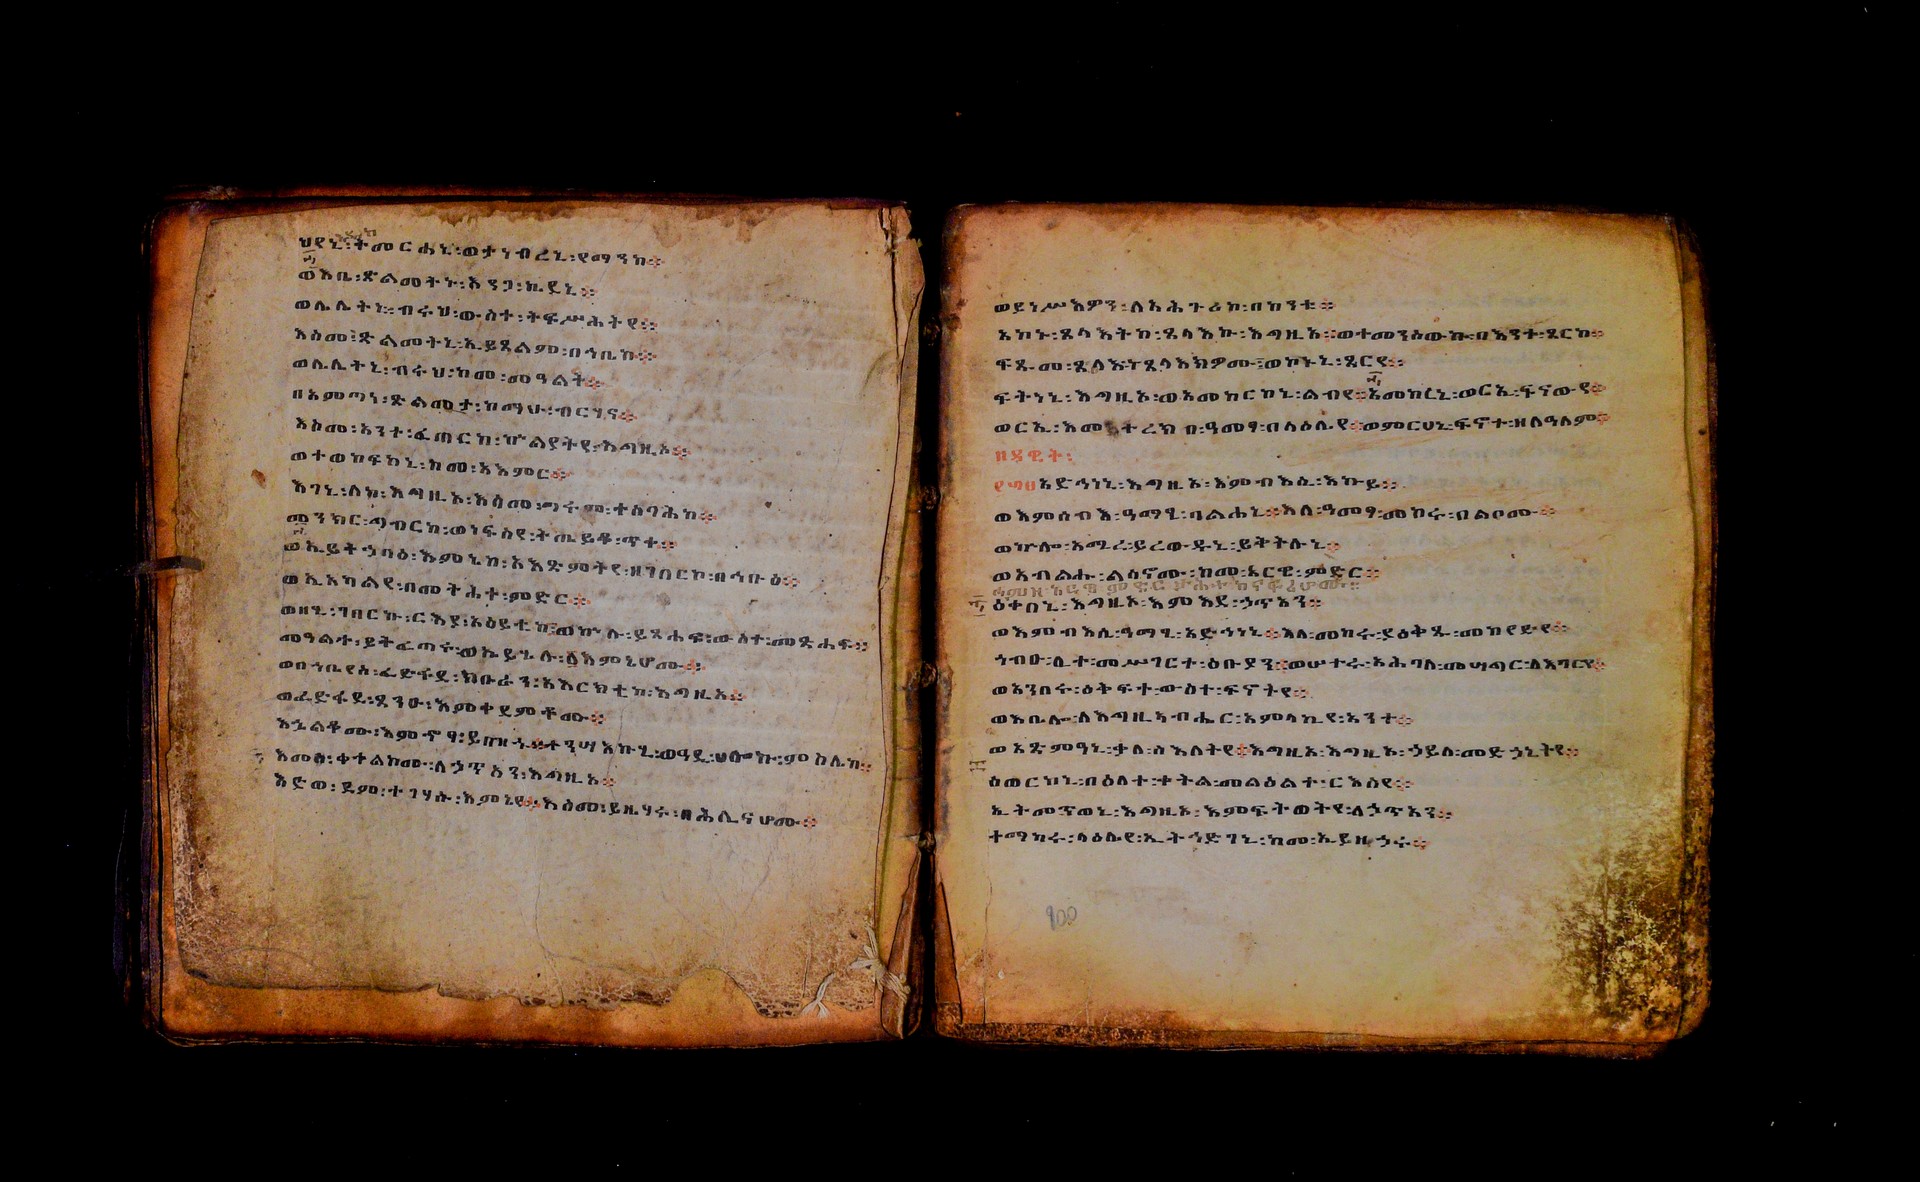 ህየኒ፡ተመርሐኒ፡ወታነብረኒ፡የማንከ።
ወእቤ፡ጽልመትኑ፡እንጋ፡ኬደኒ።
ወሌሊትኒ፡ብሩህ፡ውስተ፡ትፍሥሕትየ።
እስመ፡ጽልመትኒ፡ኢይጸልም፡በኀቤከ።
ወሌሊትኒ፡ብሩህ፡ከመ፡መዓልት።
በአምጣነ፡ጽልመታ፡ከማሁ፡ብርሃና።
እስመ፡አንተ፡ፈጠርከ፡ኵልያትየ፡እግዚኦ።
ወተወከፍከኒ፡ከመ፡አእምር።
እገኒ፡ለከ፡እግዚኦ፡እስመ፡ግሩም፡ተሰባሕከ።
መንክር፡ግብርከ፡ወነፍስየ፡ትጤይቆ፡ጥተ።
ወኢይትኃባዕ፡እምኔከ፡አእጽምትየ፡ዘገበርከ፡በኅቡዕ።
ወኢአካልየ፡በመትሕተ፡ምድር።
ወዘሂ፡ገበርኩ፡ርእያ፡አዕይቲከ።ወኵሉ፡ይጸሐፍ፡ውስተ፡መጽሐፍ።
መዓልተ፡ይትፈጠሩ፡ወኢይሄሉ፡፩እምኔሆሙ።
ወበኀቤየሰ፡ፈድፋደ፡ክቡራን፡አእርክቲከ፡እግዚኦ።
ወፈድፋደ፡ጸንዑ፡እምቀደምቶሙ።
እኌልቆሙ፡እምኖፃ፡ይበዝኁ።ተንሣእኩሂ፡ወዓዲ፡ሀሎኩ፡ምስሌከ።
እመሰ፡ቀተልኮሙ፡ለኃጥአን፡እግዚኦ።
እድወ፡ደም፡ተገሃሡ፡እምኔየ።እስመ፡ይዜሃሩ፡በሕሊናሆሙ።
ወይነሥእዎን፡ለአሕጉሪከ፡በከንቱ።
አኮኑ፡ጸላእትከ፡ጸላእኩ፡እግዚኦ።ወተመንሰውኩ፡በእንተ፡ጸርከ።
ፍጹመ፡ጽልአ፡ጸላእክዎሙ፡ወኮኑኒ፡ጸርየ።
ፍትነኒ፡እግዚኦ፡ወአመክርከኒ፡ልብየ።አመክረኒ፡ወርኢ፡ፍናውየ።
ወርኢ፡እመ፡ትረክብ፡ዓመፃ፡በላዕሌየ።ወምርሀኒ፡ፍኖተ፡ዘለዓለም።
ዘዳዊት፡
አድኅነኒ፡እግዚኦ፡እምብእሲ፡እኩይ።
ወእምሰብእ፡ዓማፂ፡ባልሐኒ።እለ፡ዓመፃ፡መከሩ፡በልቦሙ።
ወኵሎ፡አሚረ፡ይረውዱኒ፡ይትትሉኒ።
ወአብልሑ፡ልሳኖሙ፡ከመ፡አርዌ፡ምድር።
ዕቀበኒ፡እግዚኦ፡እምእደ፡ኃጥአን።
ወእምብእሲ፡ዓማፂ፡አድኅነኒ።እለ፡መከሩ፡ያዕቅጹ፡መከየድየ።
ኀብዑ፡ሊተ፡መሥገርተ፡ዕቡያን።ወሠተሩ፡አሕባለ፡መሣግር፡ለእገርየ።
ወአንበሩ፡ዕቅፍተ፡ውስተ፡ፍኖትየ።
ወእቤሎ፡ለእግዚአብሔር፡አምላኪየ፡አንተ።
ወአጽምዓኒ፡ቃለ፡ስእለትየ።እግዚኦ፡እግዚኦ፡ኃይለ፡መድኃኒትየ።
ሰወርከኒ፡በዕለተ፡ቀትል፡መልዕልተ፡ርእስየ።
ኢትመጥወኒ፡እግዚኦ፡እምፍትወትየ፡ለኃጥአን።
ተማከሩ፡ላዕሌየ፡ኢትኅድገኒ፡ከመ፡ኢይዘኃሩ።